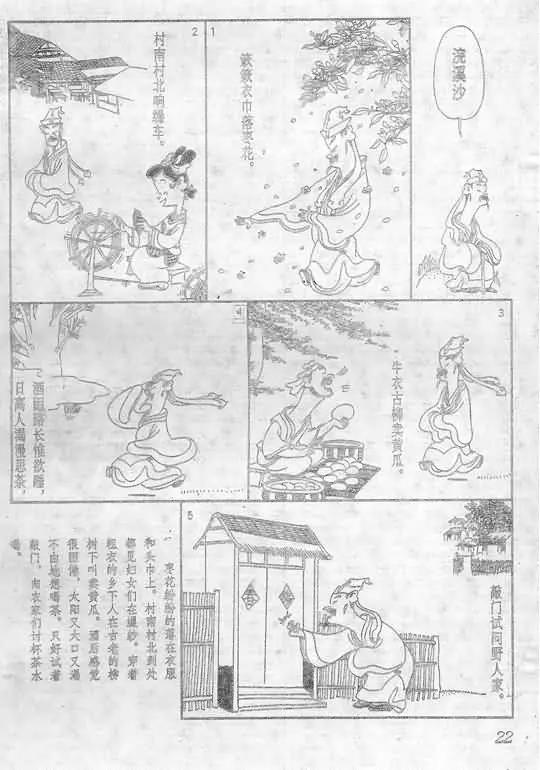 浣溪沙
1
簌簌衣巾落枣花。
2
村南村北响缲车。
3
牛衣古柳卖黄瓜。
4
酒困路长惟欲睡，
日高人渴漫思茶，
5
敲门试问野人家。
枣花纷纷的落在衣服
和头巾上。村南村北到处
都见妇女们在缫纱。穿着
粗衣的乡下人在古老的柳
树下叫卖黄瓜。酒后感觉
很困倦，太阳又大口又渴
不由地想喝茶。只好试着
敲门，向农家们讨杯茶水
喝。
22